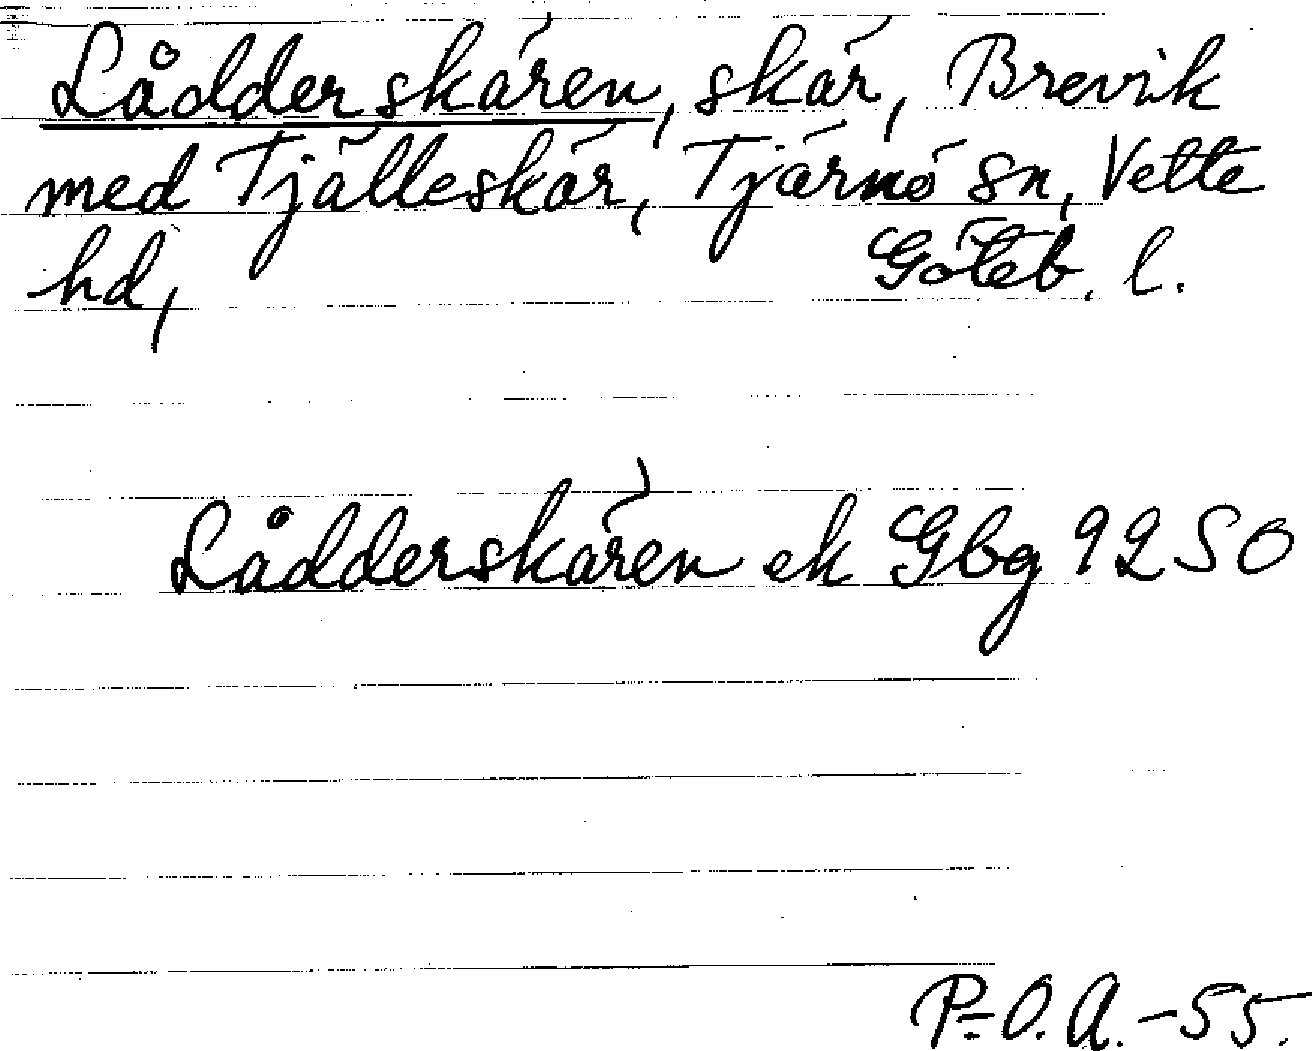 Lådderskären, skär, Brevik
med Tjälleskär, Tjärnö sn, Vette
hd, Göteb. l.
Lådderskären ek Gbg 9250
P-O.A.-55.